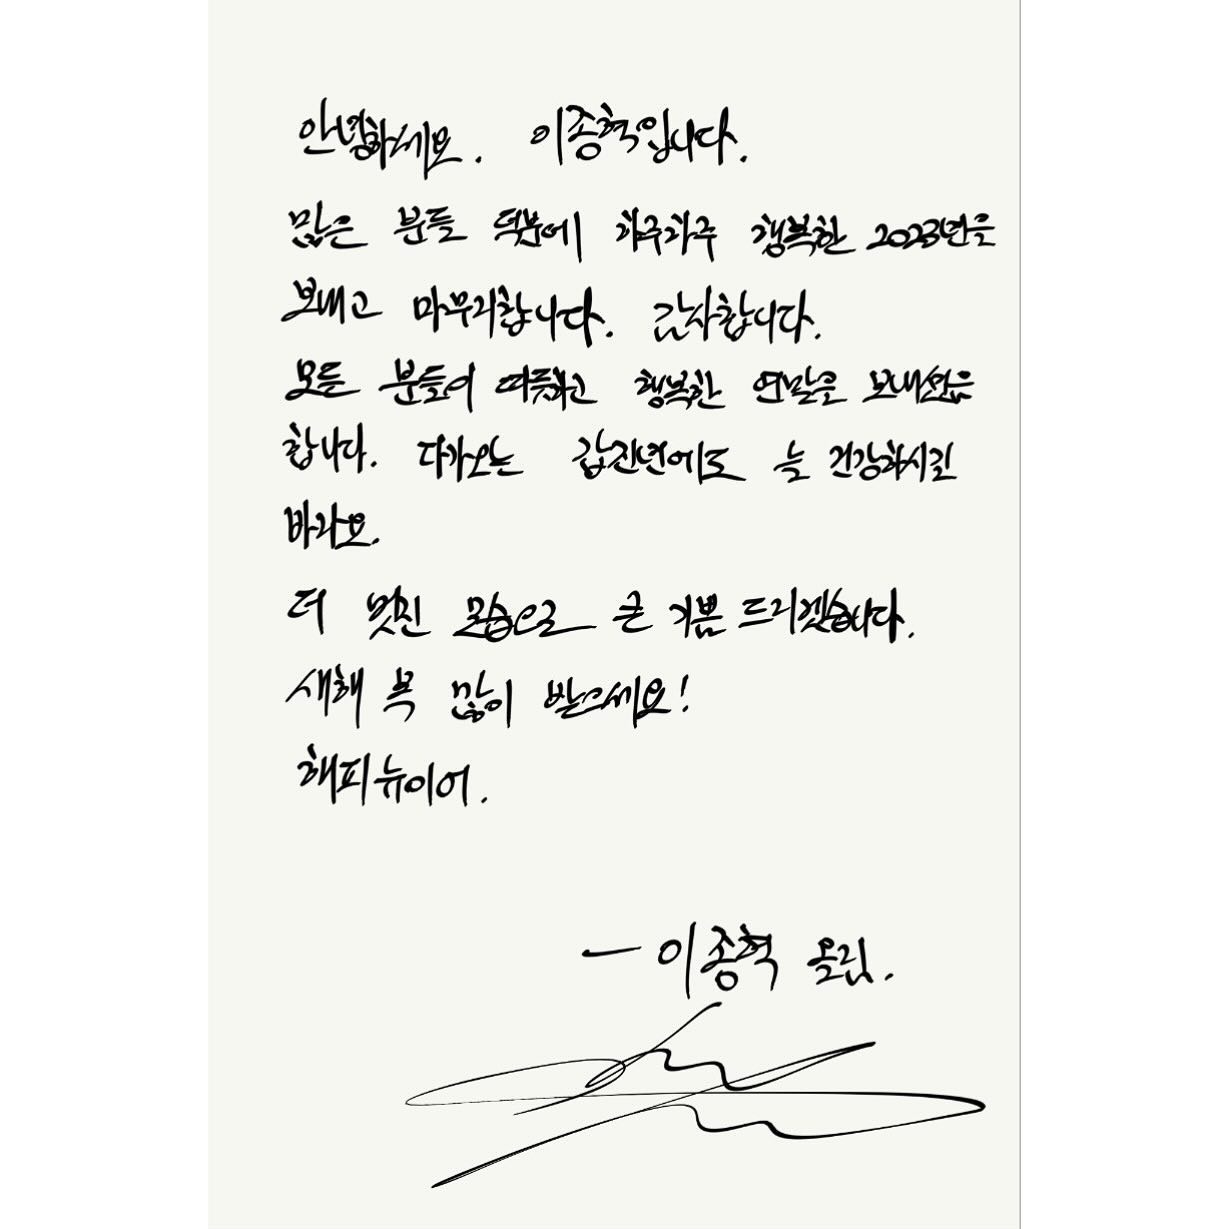 안녕하세요. 이종혁입니다.
많은 분들 덕분에 하루하루 행복한 2023년을
보내고 마무리합니다. 감사합니다.
모든 분들이 따뜻하고 행복한 연말을 보내셨음
합니다. 다가오는 갑진년에도 늘 건강하시길
바라요.
더 멋진 모습으로 큰 기쁨 드리겠습니다.
새해 복 많이 받으세요!
해피뉴이어.
- 이종혁 올림.